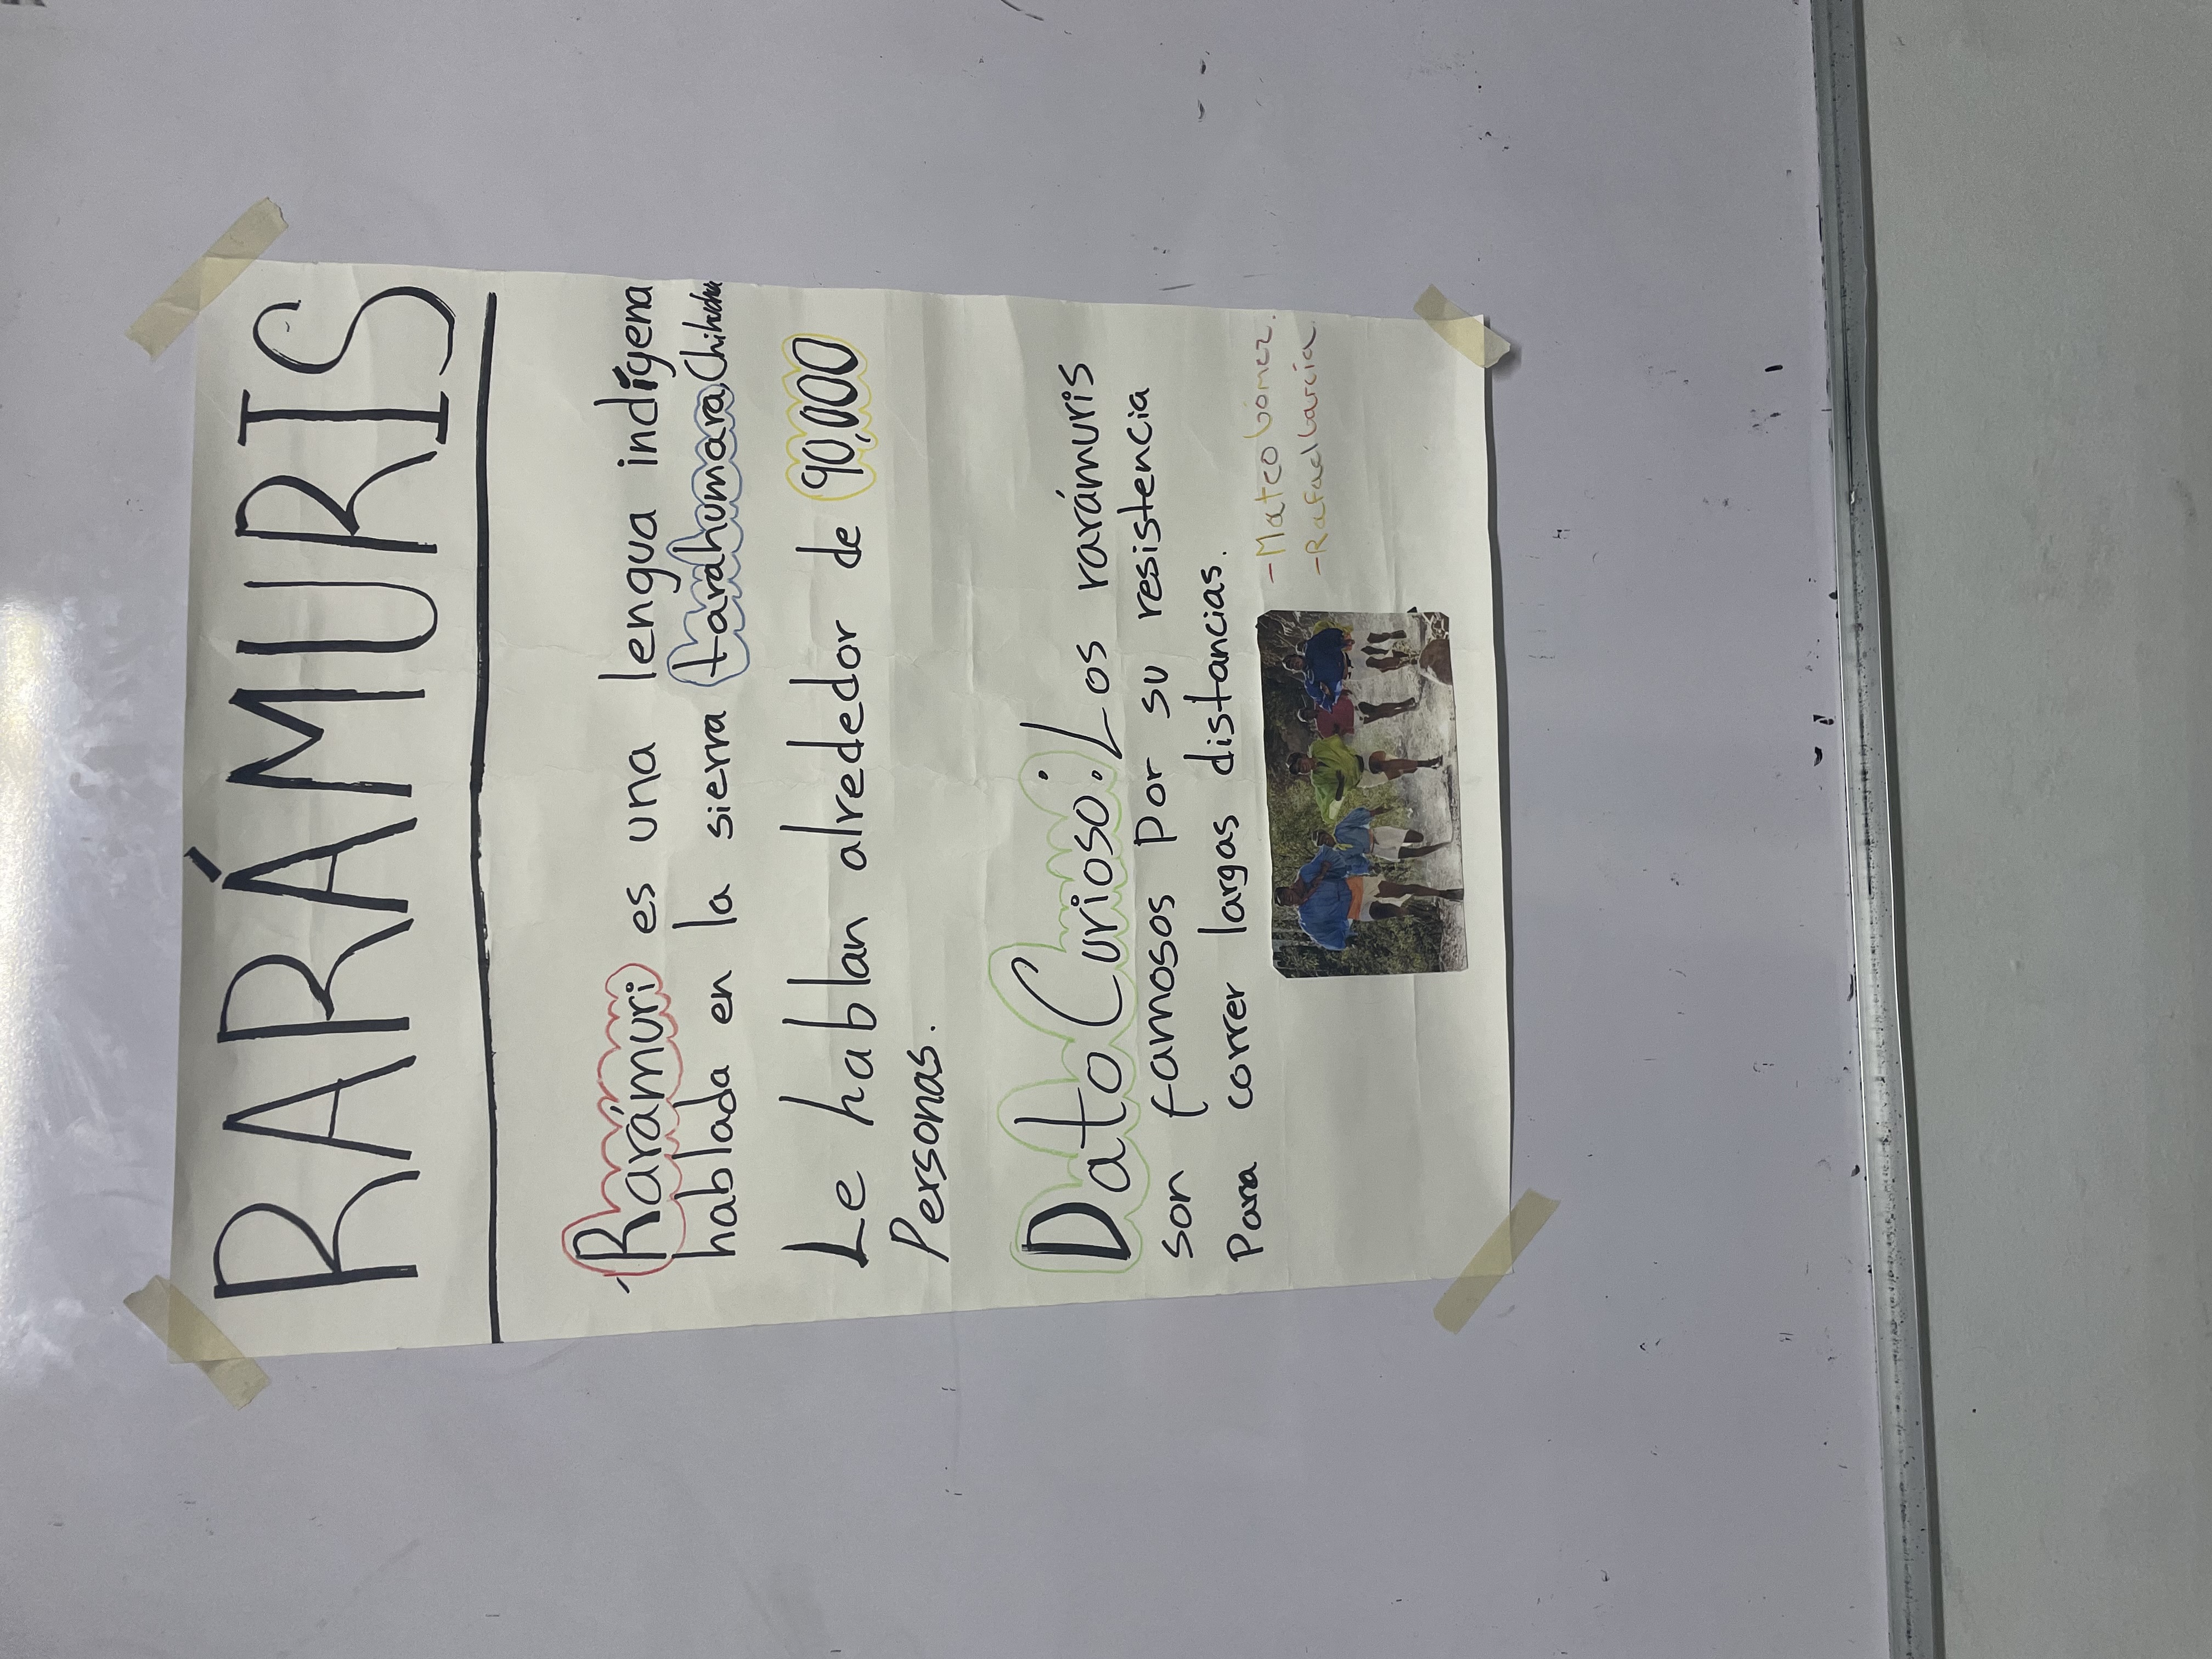 RARÁMURIS
Rarámuri es una lengua indígena
hablada en la sierra tarahumara, Chihuahua
Le hablan alrededor de 90,000
Personas.
Dato Curioso: Los rarámuris
son famosos por su resistencia
Para correr largas distancias.
-Mateo Gómez.
-Rafael García.